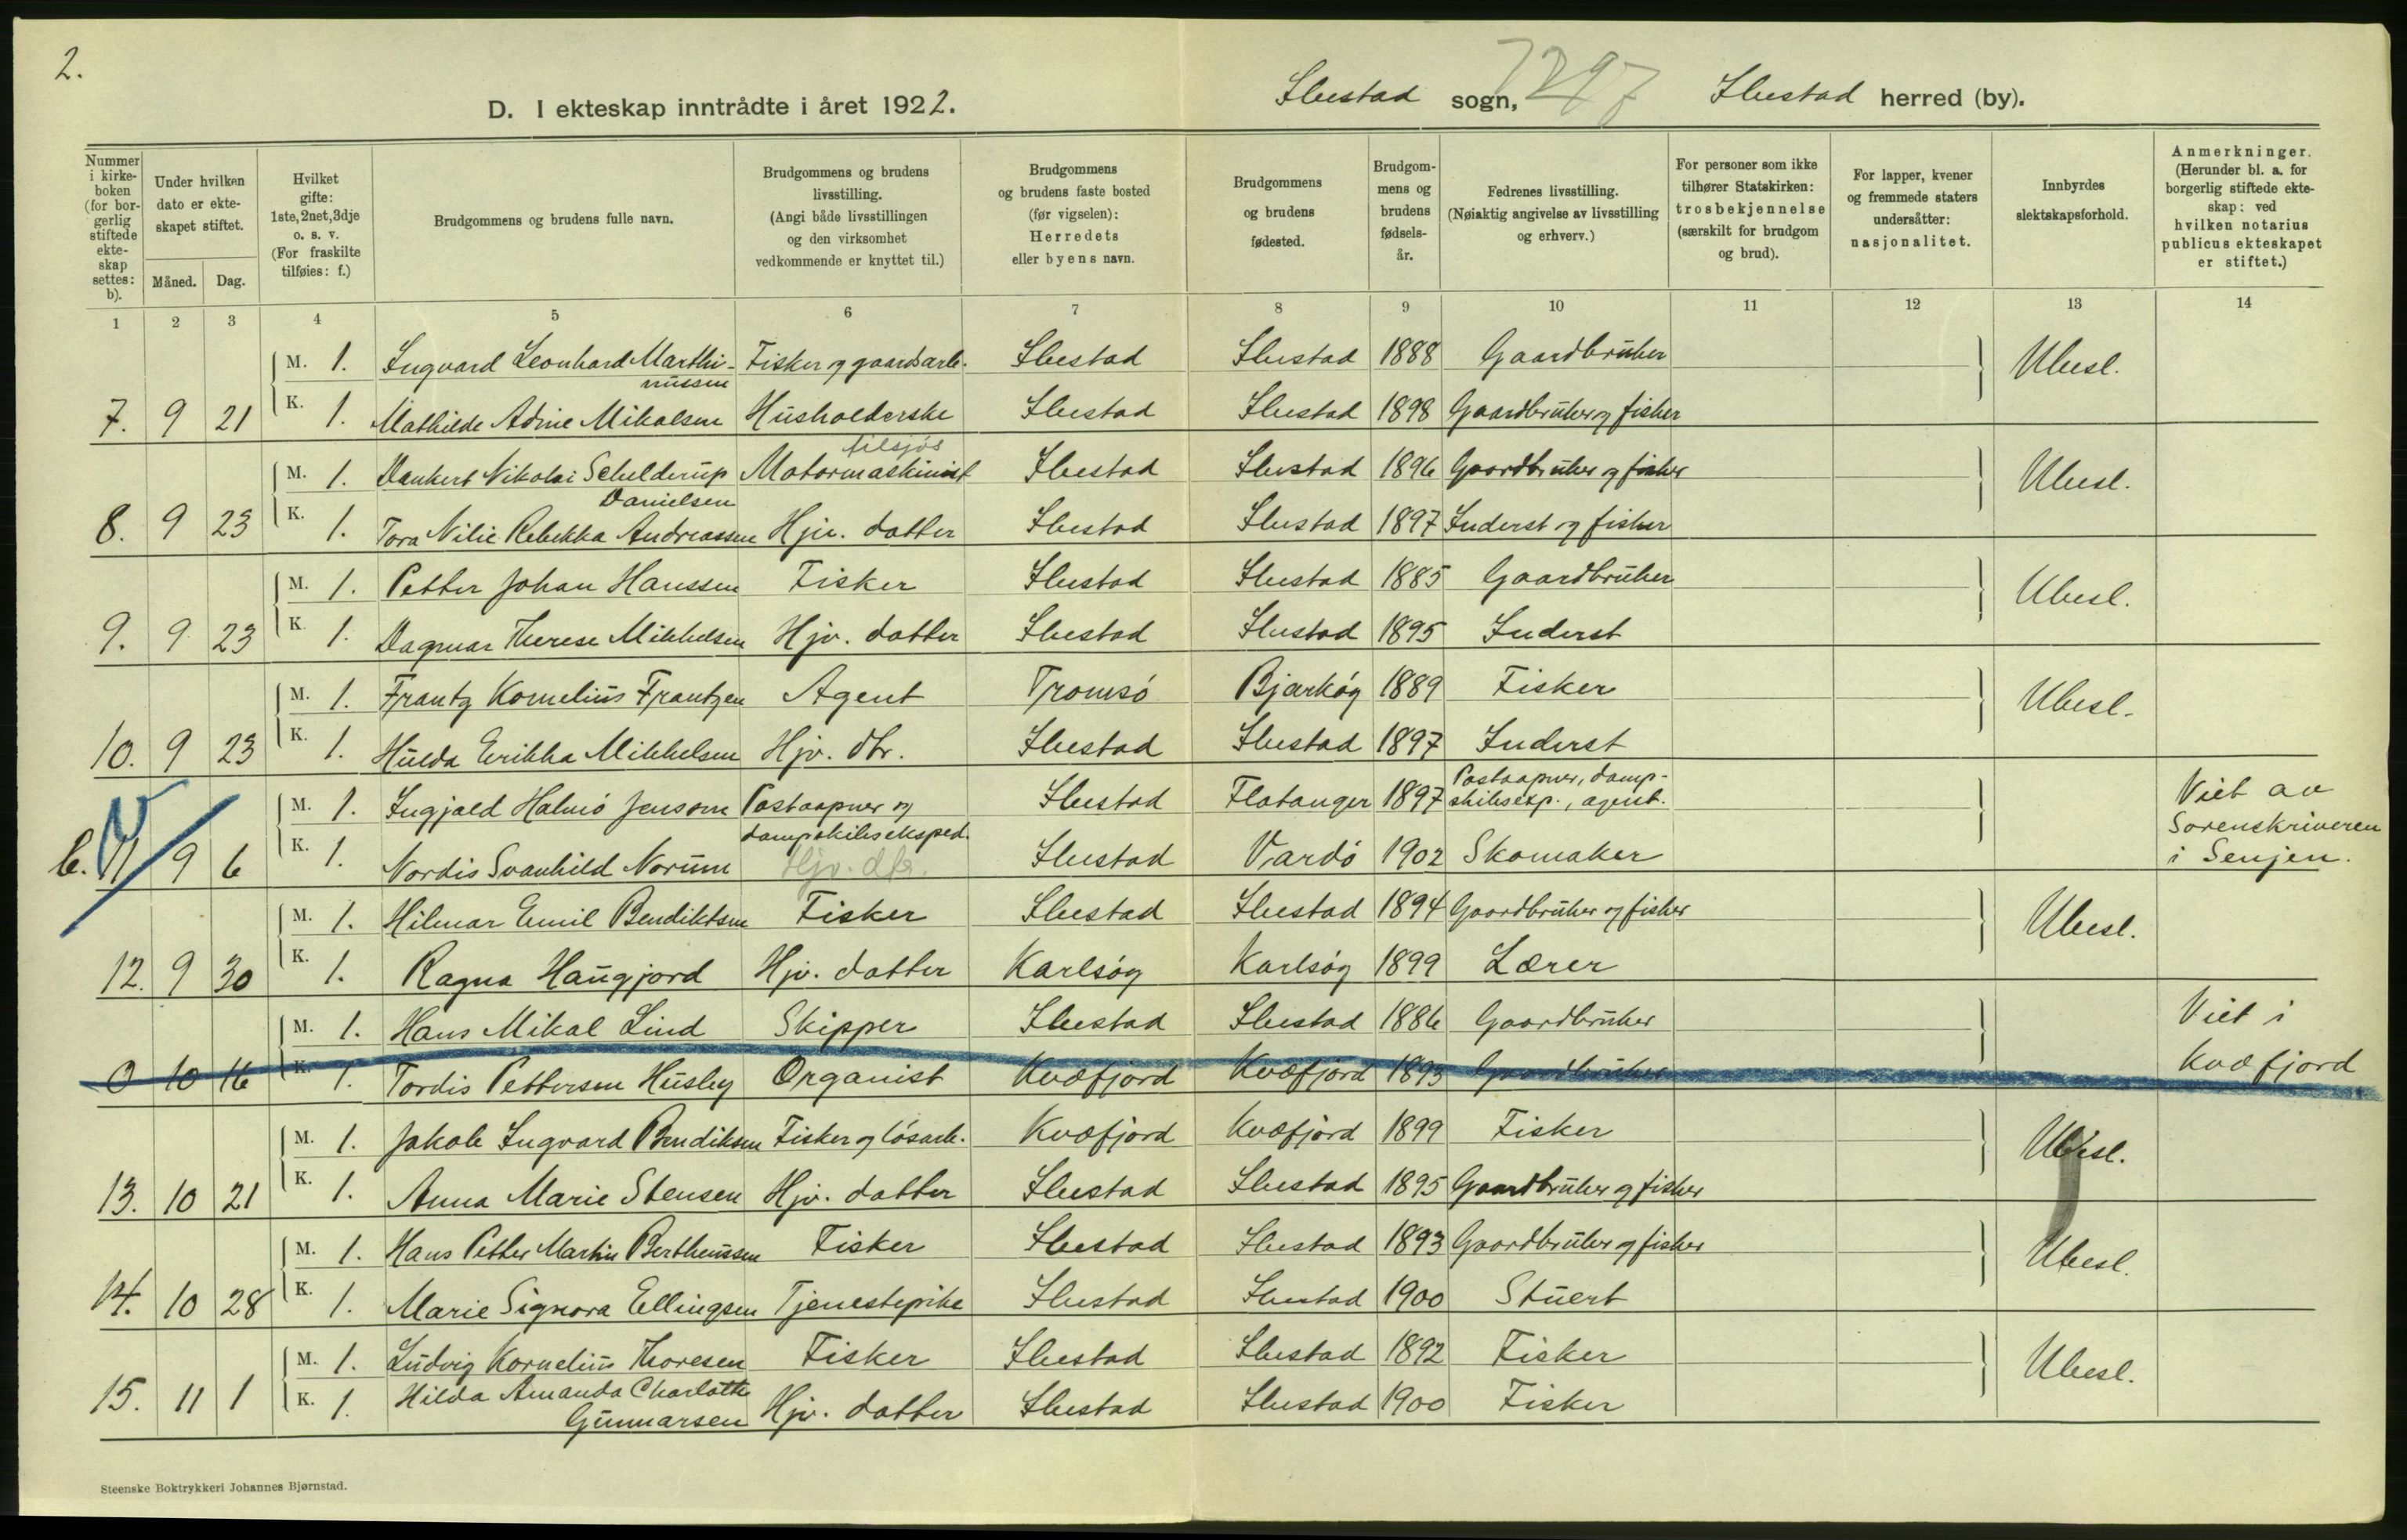 2.
D. I ekteskap inntrådte i året 1922.
Ibestad sogn, 7297 Ibestad herred (by).
Nummer i kirkeboken (for borgerlig stiftede ekteskap settes: b).
Under hvilken dato er ekteskapet stiftet.
Måned. Dag.
Hvilket gifte: 1ste, 2net, 3dje o. s. v. (For fraskilte tilføies: f.)
Brudgommens og brudens fulle navn.
Brudgommens og brudens livsstilling. (Angi både livsstillingen og den virksomhet vedkommende er knyttet til.)
Brudgommens og brudens faste bosted (før vigselen): Herredets eller byens navn.
Brudgommens og brudens fødested.
Brudgommens og brudens fødselsår.
Fedrenes livsstilling. (Nøiaktig angivelse av livsstilling og erhverv.)
For personer som ikke tilhører Statskirken: trosbekjennelse (særskilt for brudgom og brud).
For lapper, kvener og fremmede staters undersåtter: nasjonalitet.
Innbyrdes slektskapsforhold.
Anmerkninger. (Herunder bl. a. for borgerlig stiftede ekteskap: ved hvilken notarius publicus ekteskapet er stiftet.)
1 2 3 4 5 6 7 8 9 10 11 12 13 14
M. 1. Ingvard Leonhard Marthinussen Fisker og gaardsarb. Ibestad Ibestad 1888 Gaardbruker Ubesl.
7. 9 21 K. 1. Mathilde Adine Mikalsen Husholderske Ibestad Ibestad 1898 Gaardbruker og fisker
tilsjøs
M. 1. Dankert Nikolai Schelderup Danielsen Motormaskinist Ibestad Ibestad 1896 Gaardbruker og fisker Ubesl.
8. 9 23 K. 1. Tora Nilie Rebekka Andreassen Hjv. datter Ibestad Ibestad 1897 Inderst og fisker
M. 1. Petter Johan Hanssen Fisker Ibestad Ibestad 1885 Gaardbruker Ubesl.
9. 9 23 K. 1. Dagmar Therese Mikkelsen Hjv. datter Ibestad Ibestad 1895 Inderst
M. 1. Frantz Kornelius Frantzen Agent Tromsö Bjarköy 1889 Fisker Ubesl.
10. 9 23 K. 1. Hulda Erikka Mikkelsen Hjv. dtr. Ibestad Ibestad 1897 Inderst
M. 1. Ingjald Halmö Jensom Postaapner og dampskibseksped. Ibestad Flatanger 1897 Postaapner, dampskibsexp., agent. Viet av Sorenskriveren i Senjen.
b. 11 9 6 K. 1. Nordis Svanhild Norum Hjv. dtr. Ibestad Vardö 1902 Skomaker
M. 1. Hilmar Emil Bendiktsen Fisker Ibestad Ibestad 1894 Gaardbruker og fisker Ubesl.
12. 9 30 K. 1. Ragna Haugjord Hjv. datter Karlsöy Karlsöy 1899 Lærer
M. 1. Hans Mikal Lind Skipper Ibestad Ibestad 1886 Gaardbruker Viet i Kvæfjord
0 10 16 K. 1. Tordis Pettersen Husby Organist Kvæfjord Kvæfjord 1893 Gaardbruker
M. 1. Jakob Ingvard Bendiksen Fisker og lösarb. Kvæfjord Kvæfjord 1899 Fisker Ubesl.
13. 10 21 K. 1. Anna Marie Stensen Hjv. datter Ibestad Ibestad 1895 Gaardbruker og fisker
M. 1. Hans Petter Martin Bertheussen Fisker Ibestad Ibestad 1893 Gaardbruker og fisker Ubesl.
14. 10 28 K. 1. Marie Signora Ellingsen Tjenestepike Ibestad Ibestad 1900 Stuert
M. 1. Ludvig Kornelius Thoresen Fisker Ibestad Ibestad 1892 Fisker Ubesl.
15. 11 1 K. 1. Hilda Amanda Charlotte Gunnarsen Hjv. datter Ibestad Ibestad 1900 Fisker
Steenske Boktrykkeri Johannes Bjørnstad.